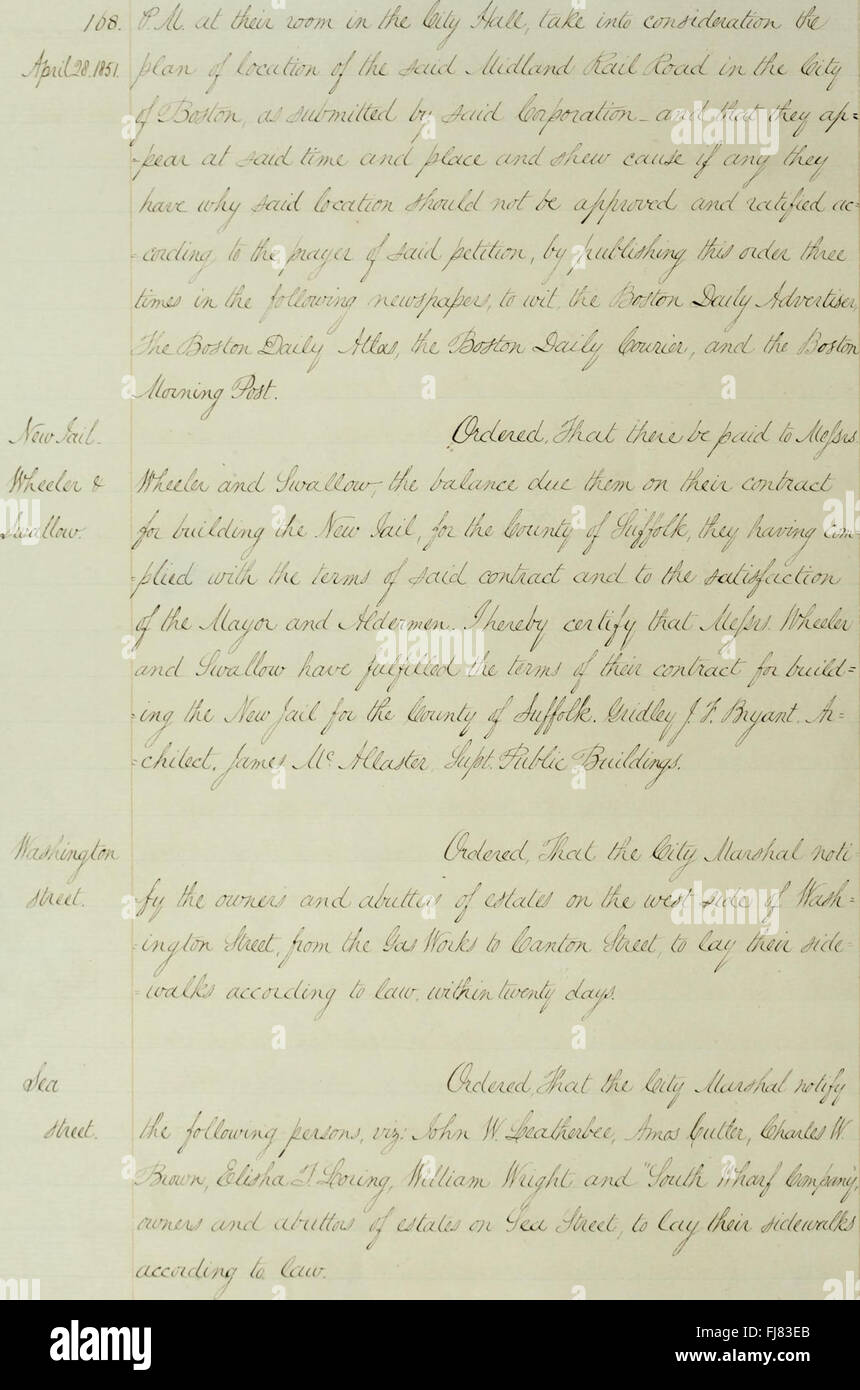 168. P.M. at their room in the City Hall, take into consideration the
April 28. 1851. plan of location of the said Midland Rail Road in the City
of Boston, as submitted by said Corporation - and that they ap=
=pear at said time and place and shew cause if any they
have why said location should not be approved and ratified ac=
=cording to the prayer of said petition, by publishing this order three
times in the following newspapers, to wit, the Boston Daily Advertiser,
The Boston Daily Atlas, the Boston Daily Courier, and the Boston
Morning Post.
New Jail. Ordered, That there be paid to Messrs.
Wheeler & Wheeler and Swallow, the balance due them on their contract
Swallow. for building the New Jail, for the County of Suffolk, they having com=
=plied with the terms of said contract and to the satisfaction
of the Mayor and Aldermen. I hereby certify that Messrs. Wheeler
and Swallow have fulfilled the terms of their contract for build=
=ing the New Jail for the County of Suffolk. Gridley J. F. Bryant. Ar=
=chitect. James Mc. Allaster. Supt. Public Buildings.
Washington Ordered, That the City Marshal noti=
street. =fy the owners and abuttors of estates on the west side of Wash=
=ington Street, from the Gas Works to Canton Street, to lay their side=
=walks according to law, within twenty days.
Sea Ordered, That the City Marshal notify
street. the following persons, viz: John W. Leatherbee, Amos Cutter, Charles W.
Brown, Elisha T. Loring, William Wright and "South Wharf Company,
owners and abuttors of estates on Sea Street, to lay their sidewalks
according to law.
alamy
alamy stock photo
FJ83EB
www.alamy.com